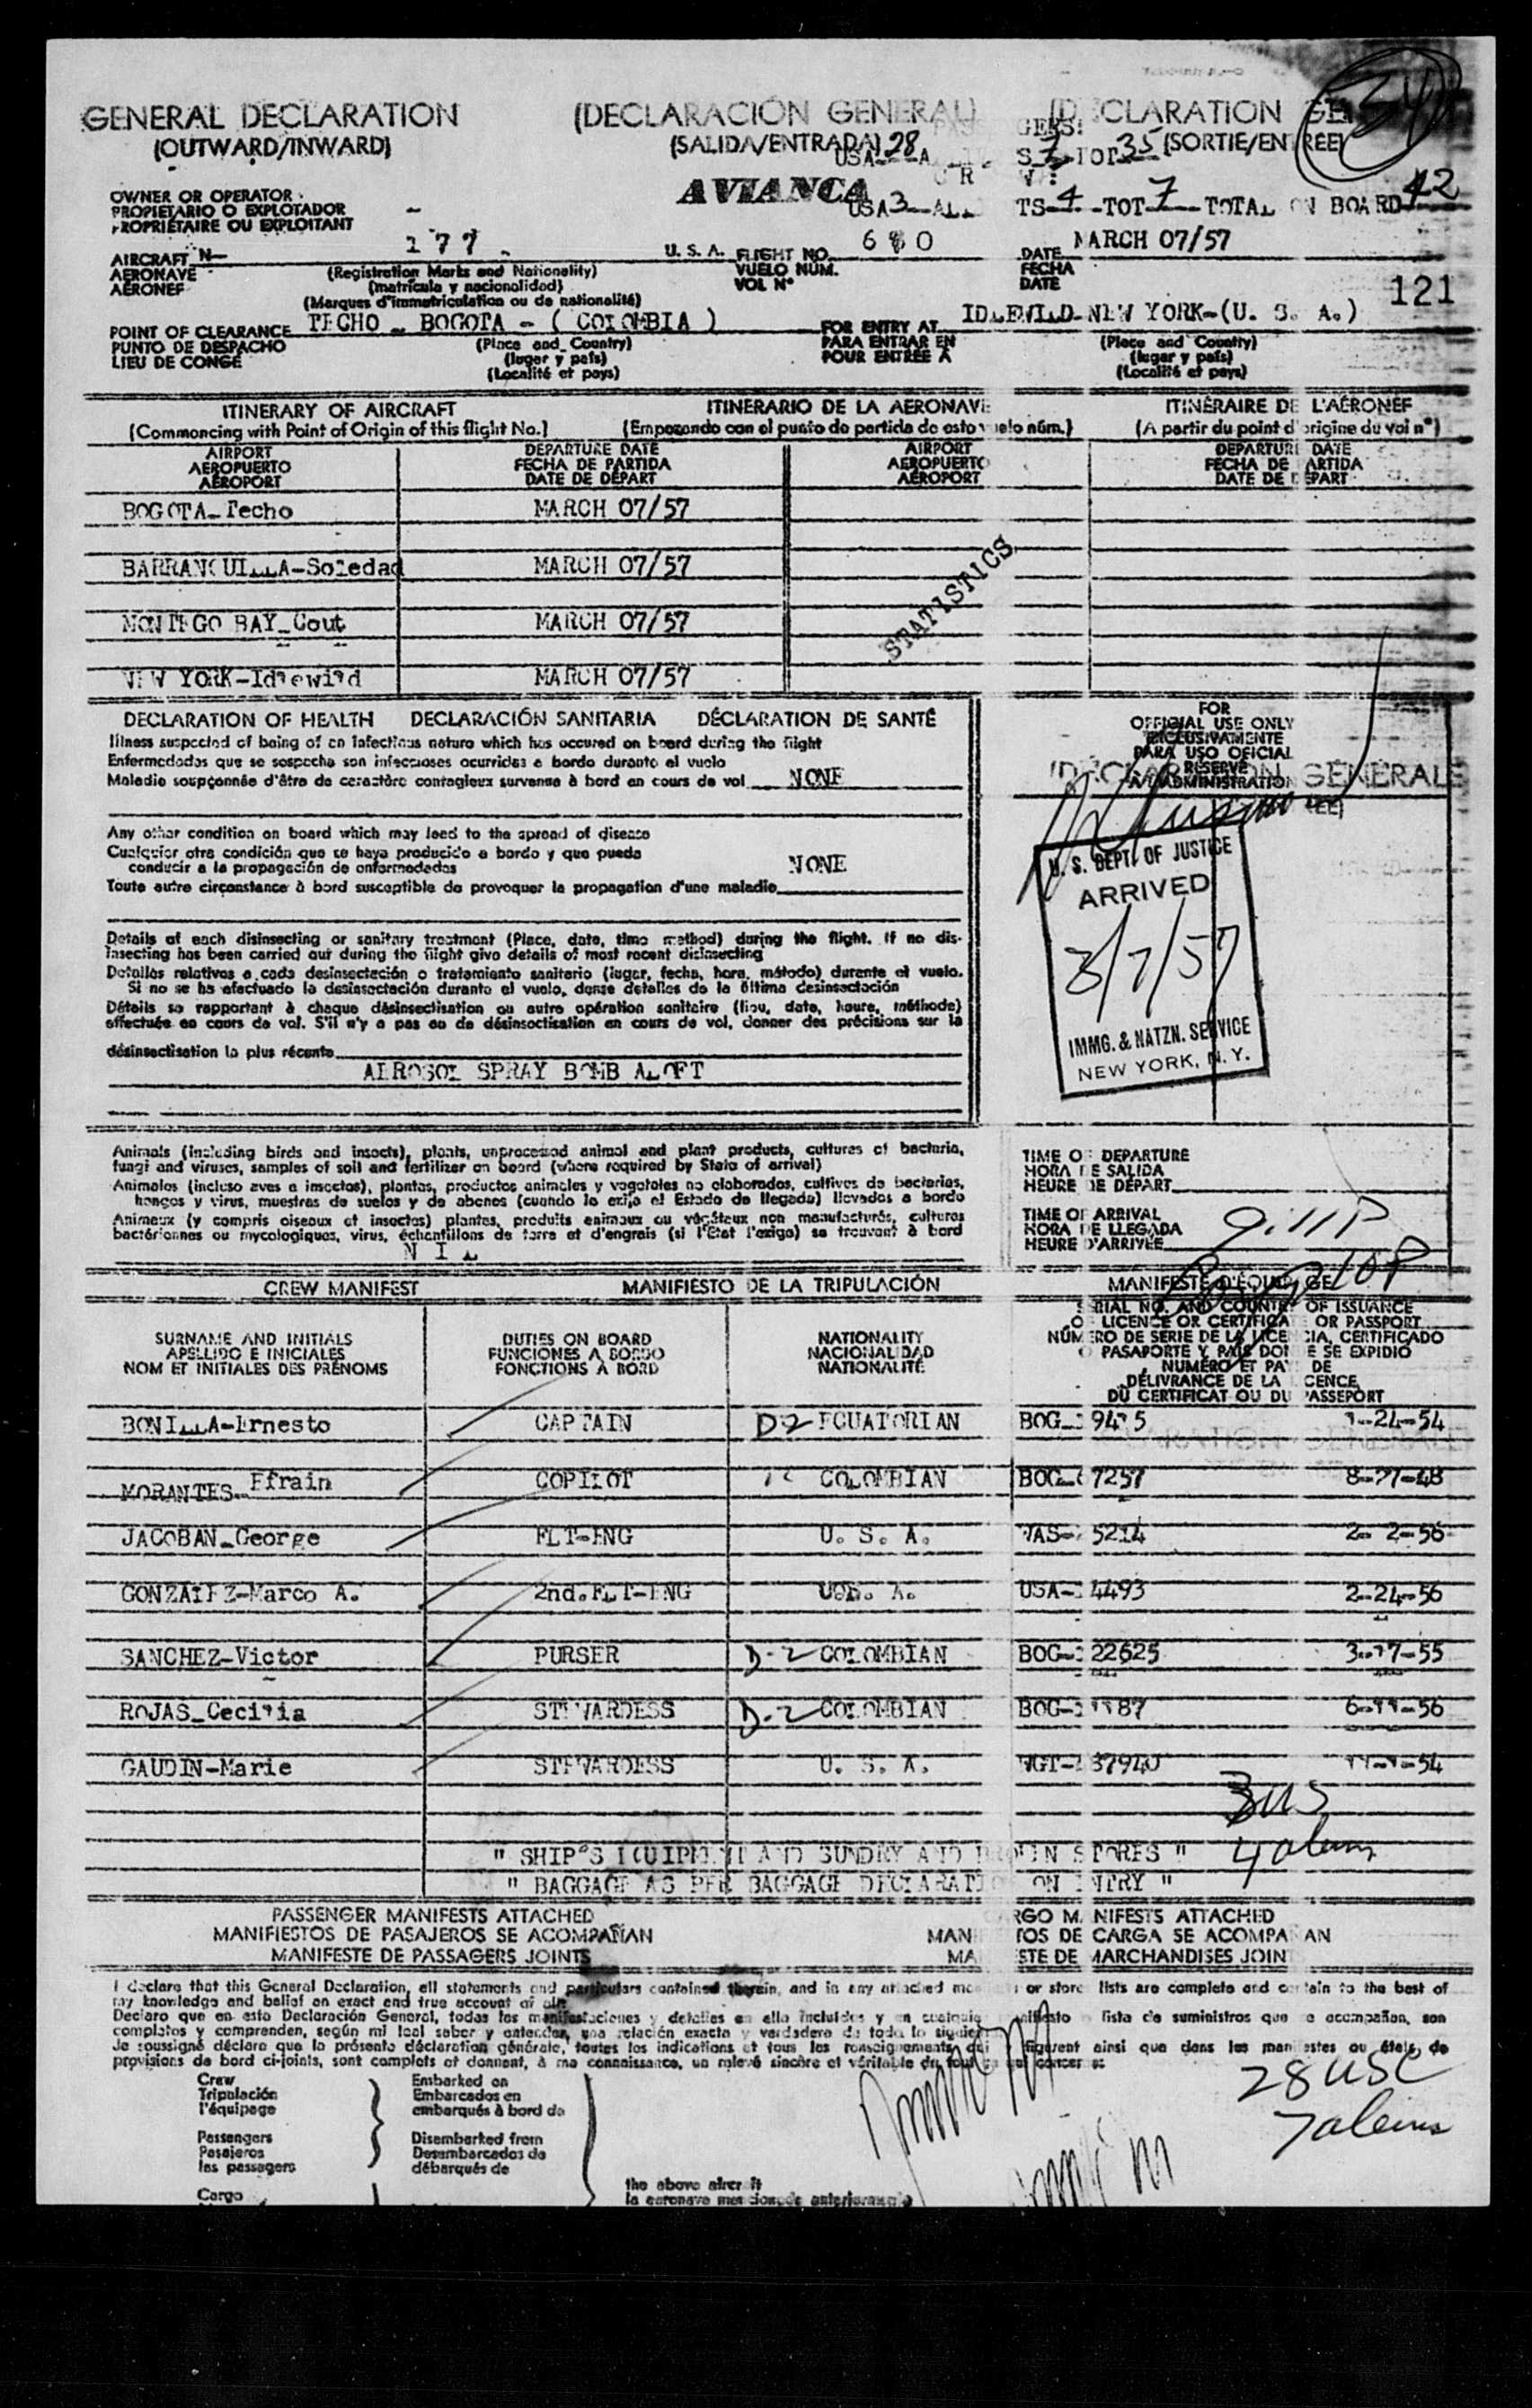 GENERAL DECLARATION (DECLARACIÓN GENERAL)
(OUTWARD/INWARD) (SALIDA/ENTRADA) (SORTIE/ENTRÉE)
34
USA 28 7 TOT 35
AVIANCA
USA 3 TS 4 -TOT 7 TOTAL ON BOARD 42
OWNER OR OPERATOR
PROPIETARIO O EXPLOTADOR
PROPRIÉTAIRE OU EXPLOITANT
AIRCRAFT N— 177 U. S. A. FLIGHT NO. 680 DATE MARCH 07/57
AERONAVE (Registration Marks and Nationality) VUELO NÚM. FECHA
AÉRONEF (matrícula y nacionalidad) VOL N° DATE
(Marques d'immatriculation ou de nationalité)
121
POINT OF CLEARANCE TECHO - BOGOTA - ( COLOMBIA ) FOR ENTRY AT IDLEWILD-NEW YORK-(U. S. A.)
PUNTO DE DESPACHO (Place and Country) PARA ENTRAR EN (Place and Country)
LIEU DE CONGÉ (lugar y país) POUR ENTRÉE A (lugar y país)
(Localité et pays) (Localité et pays)
ITINERARY OF AIRCRAFT ITINERARIO DE LA AERONAVE ITINÉRAIRE DE L'AÉRONEF
(Commencing with Point of Origin of this flight No.) (Empezando con el punto de partida de esto vuelo núm.) (A partir du point d'origine du vol n°)
AIRPORT DEPARTURE DATE AIRPORT DEPARTURE DATE
AEROPUERTO FECHA DE PARTIDA AEROPUERTO FECHA DE PARTIDA
AÉROPORT DATE DE DÉPART AÉROPORT DATE DE DÉPART
BOGOTA-Techo MARCH 07/57
BARRANQUILLA-Soledad MARCH 07/57
MONTEGO BAY-Cout MARCH 07/57
NEW YORK-Idlewild MARCH 07/57
STATISTICS
DECLARATION OF HEALTH DECLARACIÓN SANITARIA DÉCLARATION DE SANTÉ
Illness suspected of being of an infectious nature which has occured on board during the flight
Enfermedades que se sospecha son infecciosas ocurridas a bordo durante el vuelo
Maladie soupçonnée d'être de caractère contagieux survenue à bord en cours de vol NONE
Any other condition on board which may lead to the spread of disease
Cualquier otra condición que se haya producido a bordo y que pueda
conducir a la propagación de enfermedades NONE
Toute autre circonstance à bord susceptible de provoquer la propagation d'une maladie
Details of each disinsecting or sanitary treatment (Place, date, time method) during the flight. If no dis-
insecting has been carried out during the flight give details of most recent disinsecting
Detalles relativos a cada desinsectación o tratamiento sanitario (lugar, fecha, hora, método) durante el vuelo.
Si no se ha efectuado la desinsectación durante el vuelo, dense detalles de la última desinsectación
Détails se rapportant à chaque désinsectisation ou autre opération sanitaire (lieu, date, heure, méthode)
effectuée en cours de vol. S'il n'y a pas eu de désinsectisation en cours de vol, donner des précisions sur la
désinsectisation la plus récente
AEROSOL SPRAY BOMB ALOFT
FOR
OFFICIAL USE ONLY
EXCLUSIVAMENTE
PARA USO OFICIAL
RÉSERVÉ
A L'ADMINISTRATION
GÉNÉRALE
U. S. DEPT. OF JUSTICE
ARRIVED
3/7/57
IMMG. & NATZN. SERVICE
NEW YORK, N. Y.
Animals (including birds and insects), plants, unprocessed animal and plant products, cultures of bacteria,
fungi and viruses, samples of soil and fertilizer on board (where required by State of arrival)
Animales (incluso aves e insectos), plantas, productos animales y vegetales no elaborados, cultivos de bacterias,
hongos y virus, muestras de suelos y de abonos (cuando lo exija el Estado de llegada) llevados a bordo
Animaux (y compris oiseaux et insectes) plantes, produits animaux ou végétaux non manufacturés, cultures
bactériennes ou mycologiques, virus, échantillons de terre et d'engrais (si l'État l'exige) se trouvant à bord
N I L
TIME OF DEPARTURE
HORA DE SALIDA
HEURE DE DÉPART
TIME OF ARRIVAL
HORA DE LLEGADA
HEURE D'ARRIVÉE 9:11P
CREW MANIFEST MANIFIESTO DE LA TRIPULACIÓN MANIFESTE D'ÉQUIPAGE
SURNAME AND INITIALS DUTIES ON BOARD NATIONALITY SERIAL NO. AND COUNTRY OF ISSUANCE
APELLIDO E INICIALES FUNCIONES A BORDO NACIONALIDAD OF LICENCE OR CERTIFICATE OR PASSPORT
NOM ET INITIALES DES PRÉNOMS FONCTIONS À BORD NATIONALITÉ NÚMERO DE SERIE DE LA LICENCIA, CERTIFICADO
O PASAPORTE Y PAÍS DONDE SE EXPIDIÓ
NUMÉRO ET PAYS DE
DÉLIVRANCE DE LA LICENCE
DU CERTIFICAT OU DU PASSEPORT
BONILLA-Ernesto CAPTAIN D-2 ECUATORIAN BOG- 1-24-54
MORANTES-Efrain COPILOT COLOMBIAN BOG- 7257 8-27-48
JACOBAN-George FLT-ENG U. S. A. 5214 2- 2-56
GONZALEZ-Marco A. 2nd.FLT-ENG U.S. A. USA- 4493 2-24-56
SANCHEZ-Victor PURSER D-2 COLOMBIAN BOG- 22625 3-17-55
ROJAS-Cecilia STEWARDESS D-2 COLOMBIAN BOG- 1187 6-11-56
GAUDIN-Marie STEWARDESS U. S. A. 37940 11-1-54
3 US
4 aliens
" SHIP'S EQUIPMENT AND SUNDRY AND BROKEN STORES "
" BAGGAGE AS PER BAGGAGE DECLARATION ON ENTRY "
PASSENGER MANIFESTS ATTACHED CARGO MANIFESTS ATTACHED
MANIFIESTOS DE PASAJEROS SE ACOMPAÑAN MANIFIESTOS DE CARGA SE ACOMPAÑAN
MANIFESTE DE PASSAGERS JOINTS MANIFESTE DE MARCHANDISES JOINT
I declare that this General Declaration, all statements and particulars contained therein, and in any attached or store lists are complete and certain to the best of
my knowledge and belief an exact and true account of all
Declaro que en esta Declaración General, todas las manifestaciones y detalles en ella incluídos y en cualquier manifiesto lista de suministros que se acompañan, son
completos y comprenden, según mi leal saber y entender, una relación exacta y verdadera de todo lo siguiente
Je soussigné déclare que la présente déclaration générale, toutes les indications et tous les renseignements qui figurent ainsi que dans les manifestes ou états de
provisions de bord ci-joints, sont complets et donnent, à ma connaissance, un relevé sincère et véritable de tout
28 USC
7 aliens
Crew Embarked on
Tripulación Embarcados en
l'équipage embarqués à bord de
Passengers Disembarked from
Pasajeros Desembarcados de
les passagers débarqués de
the above aircraft
Cargo la aeronave mencionada anteriormente